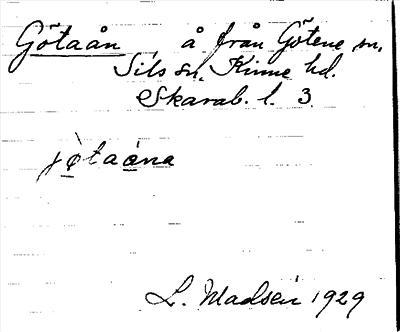 Götaån, å från Götene sn.
Sils sn. Kinne hd.
Skarab. l. 3.
jò̱taå̱na
L. Madsén 1929